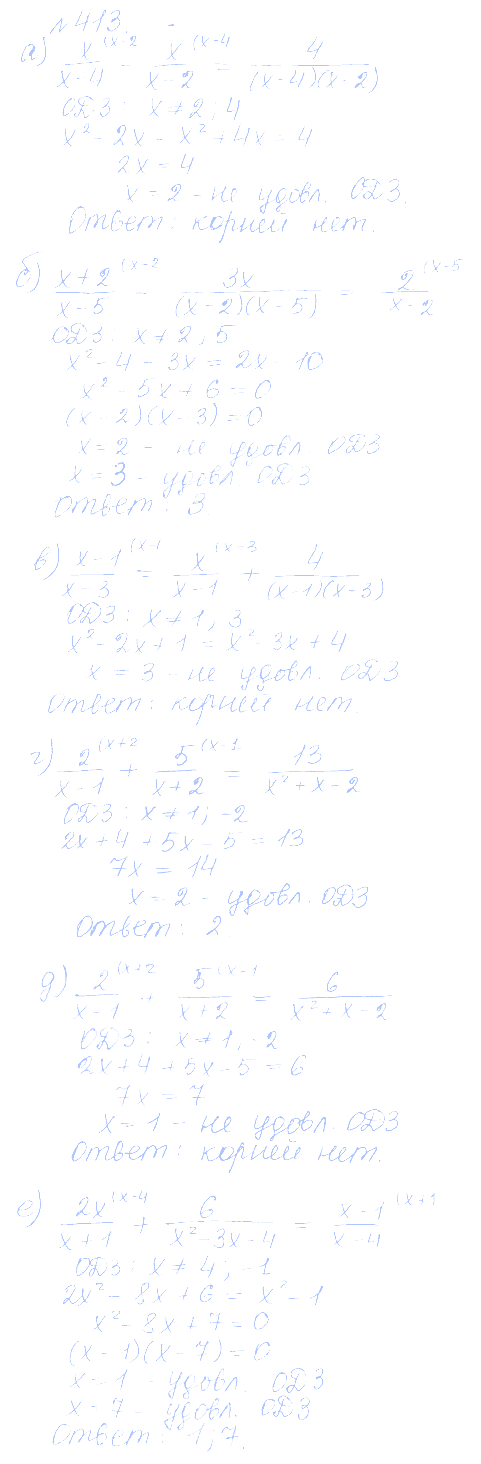 №413.
а) x^(x-2 / (x-4) - x^(x-4 / (x-2) = 4 / ((x-4)(x-2))
ОДЗ: x ≠ 2; 4
x² - 2x - x² + 4x = 4
2x = 4
x = 2 - не удовл. ОДЗ.
Ответ: корней нет.
б) x+2^(x-2 / (x-5) - 3x / ((x-2)(x-5)) = 2^(x-5 / (x-2)
ОДЗ: x ≠ 2, 5
x² - 4 - 3x = 2x - 10
x² - 5x + 6 = 0
(x - 2)(x - 3) = 0
x = 2 - не удовл ОДЗ
x = 3 - удовл ОДЗ
Ответ: 3
в) x-1^(x-1 / (x-3) = x^(x-3 / (x-1) + 4 / ((x-1)(x-3))
ОДЗ: x ≠ 1, 3
x² - 2x + 1 = x² - 3x + 4
x = 3 - не удовл. ОДЗ
Ответ: корней нет.
г) 2^(x+2 / (x-1) + 5^(x-1 / (x+2) = 13 / (x² + x - 2)
ОДЗ: x ≠ 1; -2
2x + 4 + 5x - 5 = 13
7x = 14
x = 2 - удовл. ОДЗ
Ответ: 2
д) 2^(x+2 / (x-1) + 5^(x-1 / (x+2) = 6 / (x² + x - 2)
ОДЗ: x ≠ 1, -2
2x + 4 + 5x - 5 = 6
7x = 7
x = 1 - не удовл. ОДЗ
Ответ: корней нет.
е) 2x^(x-4 / (x+1) + 6 / (x² - 3x - 4) = x-1^(x+1 / (x-4)
ОДЗ: x ≠ 4; -1
2x² - 8x + 6 = x² - 1
x² - 8x + 7 = 0
(x - 1)(x - 7) = 0
x = 1 - удовл. ОДЗ
x = 7 - удовл. ОДЗ
Ответ: 1; 7.